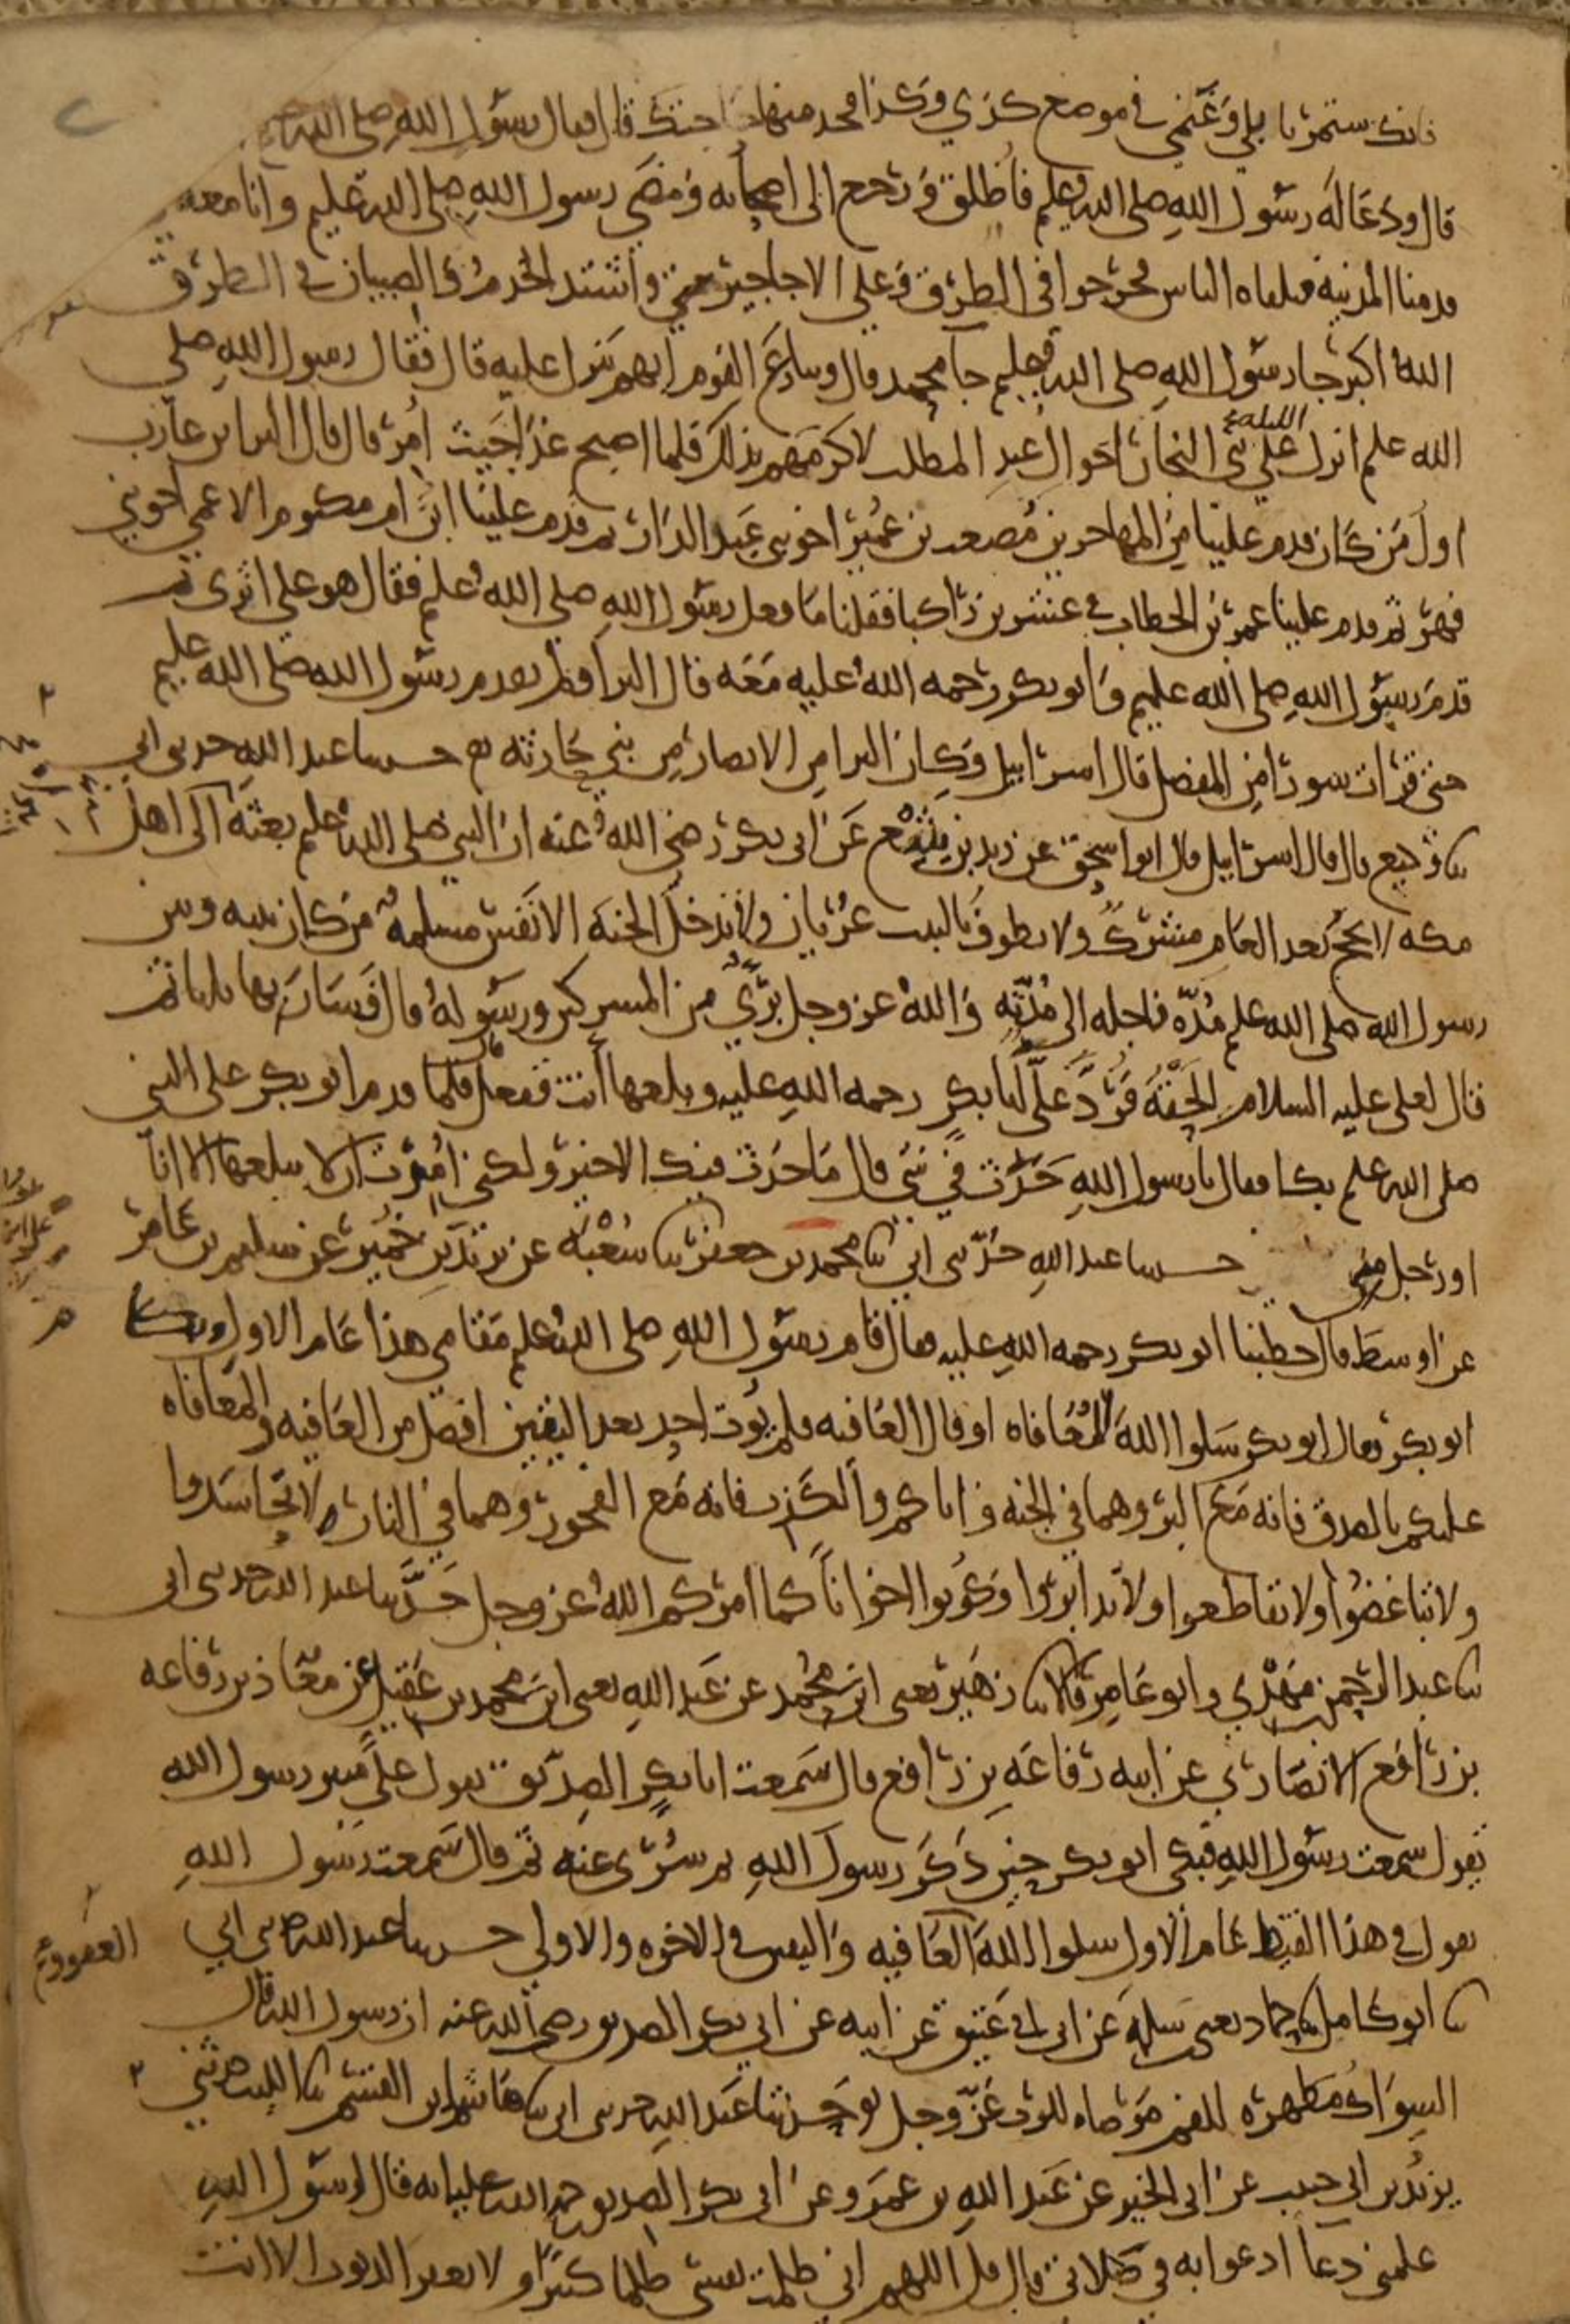 فانك ستمر بابلي وغنمي في موضع كذي وكذا فخذ منها حاجتك قال فقال رسول الله صلى الله
قال ودعا له رسول الله صلى الله عليم فاطلق ورجع الى اصحابه ومضى رسول الله صلى الله عليم وانا معه
قدمنا المدينة فتلقاه الناس فخرجوا في الطرق وعلى الاجاجير واشتد الخدم والصبيان في الطريق
الله اكبر جا رسول الله صلى الله عليم جا محمد قال وتنازع القوم ايهم ينزل عليه قال فقال رسول الله صلى
الله عليم انزل الليلة على بني النجار اخوال عبد المطلب لاكرمهم بذلك فلما اصبح غدا حيث امر قال قال البرا بن عازب
اول من كان قدم علينا من المهاجرين مصعب بن عمير اخو بني عبد الدار ثم قدم علينا ابن ام مكتوم الاعمى اخو بني
فهر ثم قدم علينا عمر بن الخطاب في عشرين راكبا فقلنا ما فعل رسول الله صلى الله عليم فقال هو على اثري ثم
قدم رسول الله صلى الله عليم وابو بكر رحمه الله عليه معه قال البرا ولم يقدم رسول الله صلى الله عليم
حتى قرات سورا من المفصل قال اسرائيل وكان البرا من الانصار من بني حارثه حدثنا عبد الله حدثني ابي
ثنا وكيع قال قال اسرائيل قال ابو اسحق عن زيد بن يثيع عن ابي بكر رضي الله عنه ان النبي صلى الله عليم بعثه الى اهل
مكه لا يحج بعد العام مشرك ولا يطوف بالبيت عريان ولا يدخل الجنة الا نفس مسلمة من كان بينه وبين
رسول الله صلى الله عليم مدة فاجله الى مدته والله عز وجل بري من المشركين ورسوله قال فسار بها ثلاثا ثم
قال لعلي عليه السلام الحقه فرد علي ابا بكر رحمه الله عليه وبلغها انت ففعل فلما قدم ابو بكر على النبي
صلى الله عليم بكا فقال يا رسول الله حدث في شي قال ما حدث فيك الا خير ولكني امرت ان لا يبلغها الا انا
او رجل مني حدثنا عبد الله حدثني ابي ثنا محمد بن جعفر ثنا شعبة عن يزيد بن خمير عن سليم بن عامر
عن اوسط قال خطبنا ابو بكر رحمه الله عليه فقال قام رسول الله صلى الله عليم مقامي هذا عام الاول وبكا
ابو بكر فقال ابو بكر سلوا الله المعافاه او قال العافيه فلم يوت احد بعد اليقين افضل من العافيه والمعافاه
عليكم بالصدق فانه مع البر وهما في الجنه واياكم والكذب فانه مع الفجور وهما في النار ولا تحاسدوا
ولا تباغضوا ولا تقاطعوا ولا تدابروا وكونوا اخوانا كما امركم الله عز وجل حدثنا عبد الله حدثني ابي
ثنا عبد الرحمن بن مهدي وابو عامر قالا ثنا زهير يعني ابن محمد عن عبد الله يعني ابن محمد بن عقيل عن معاذ بن رفاعه
بن رافع الانصاري عن ابيه رفاعه بن رافع قال سمعت ابا بكر الصديق يقول على منبر رسول الله
يقول سمعت رسول الله فبكى ابو بكر حين ذكر رسول الله ثم سري عنه ثم قال سمعت رسول الله
يقول في هذا القيظ عام الاول سلوا الله العافيه واليقين في الاخره والاولى حدثنا عبد الله حدثني ابي
العفوو
ثنا ابو كامل ثنا حماد يعني سلمه عن ابن ابي عتيق عن ابيه عن ابي بكر الصديق رضي الله عنه ان رسول الله قال
السواك مطهرة للفم مرضاه للرب عز وجل حدثنا عبد الله حدثني ابي ثنا هاشم بن القسم ثنا الليث حدثني
يزيد بن ابي حبيب عن ابي الخير عن عبد الله بن عمرو عن ابي بكر الصديق رحمه الله عليه انه قال لرسول الله
علمني دعا ادعوا به في صلاتي قال قل اللهم اني ظلمت نفسي ظلما كثيرا ولا يغفر الذنوب الا انت